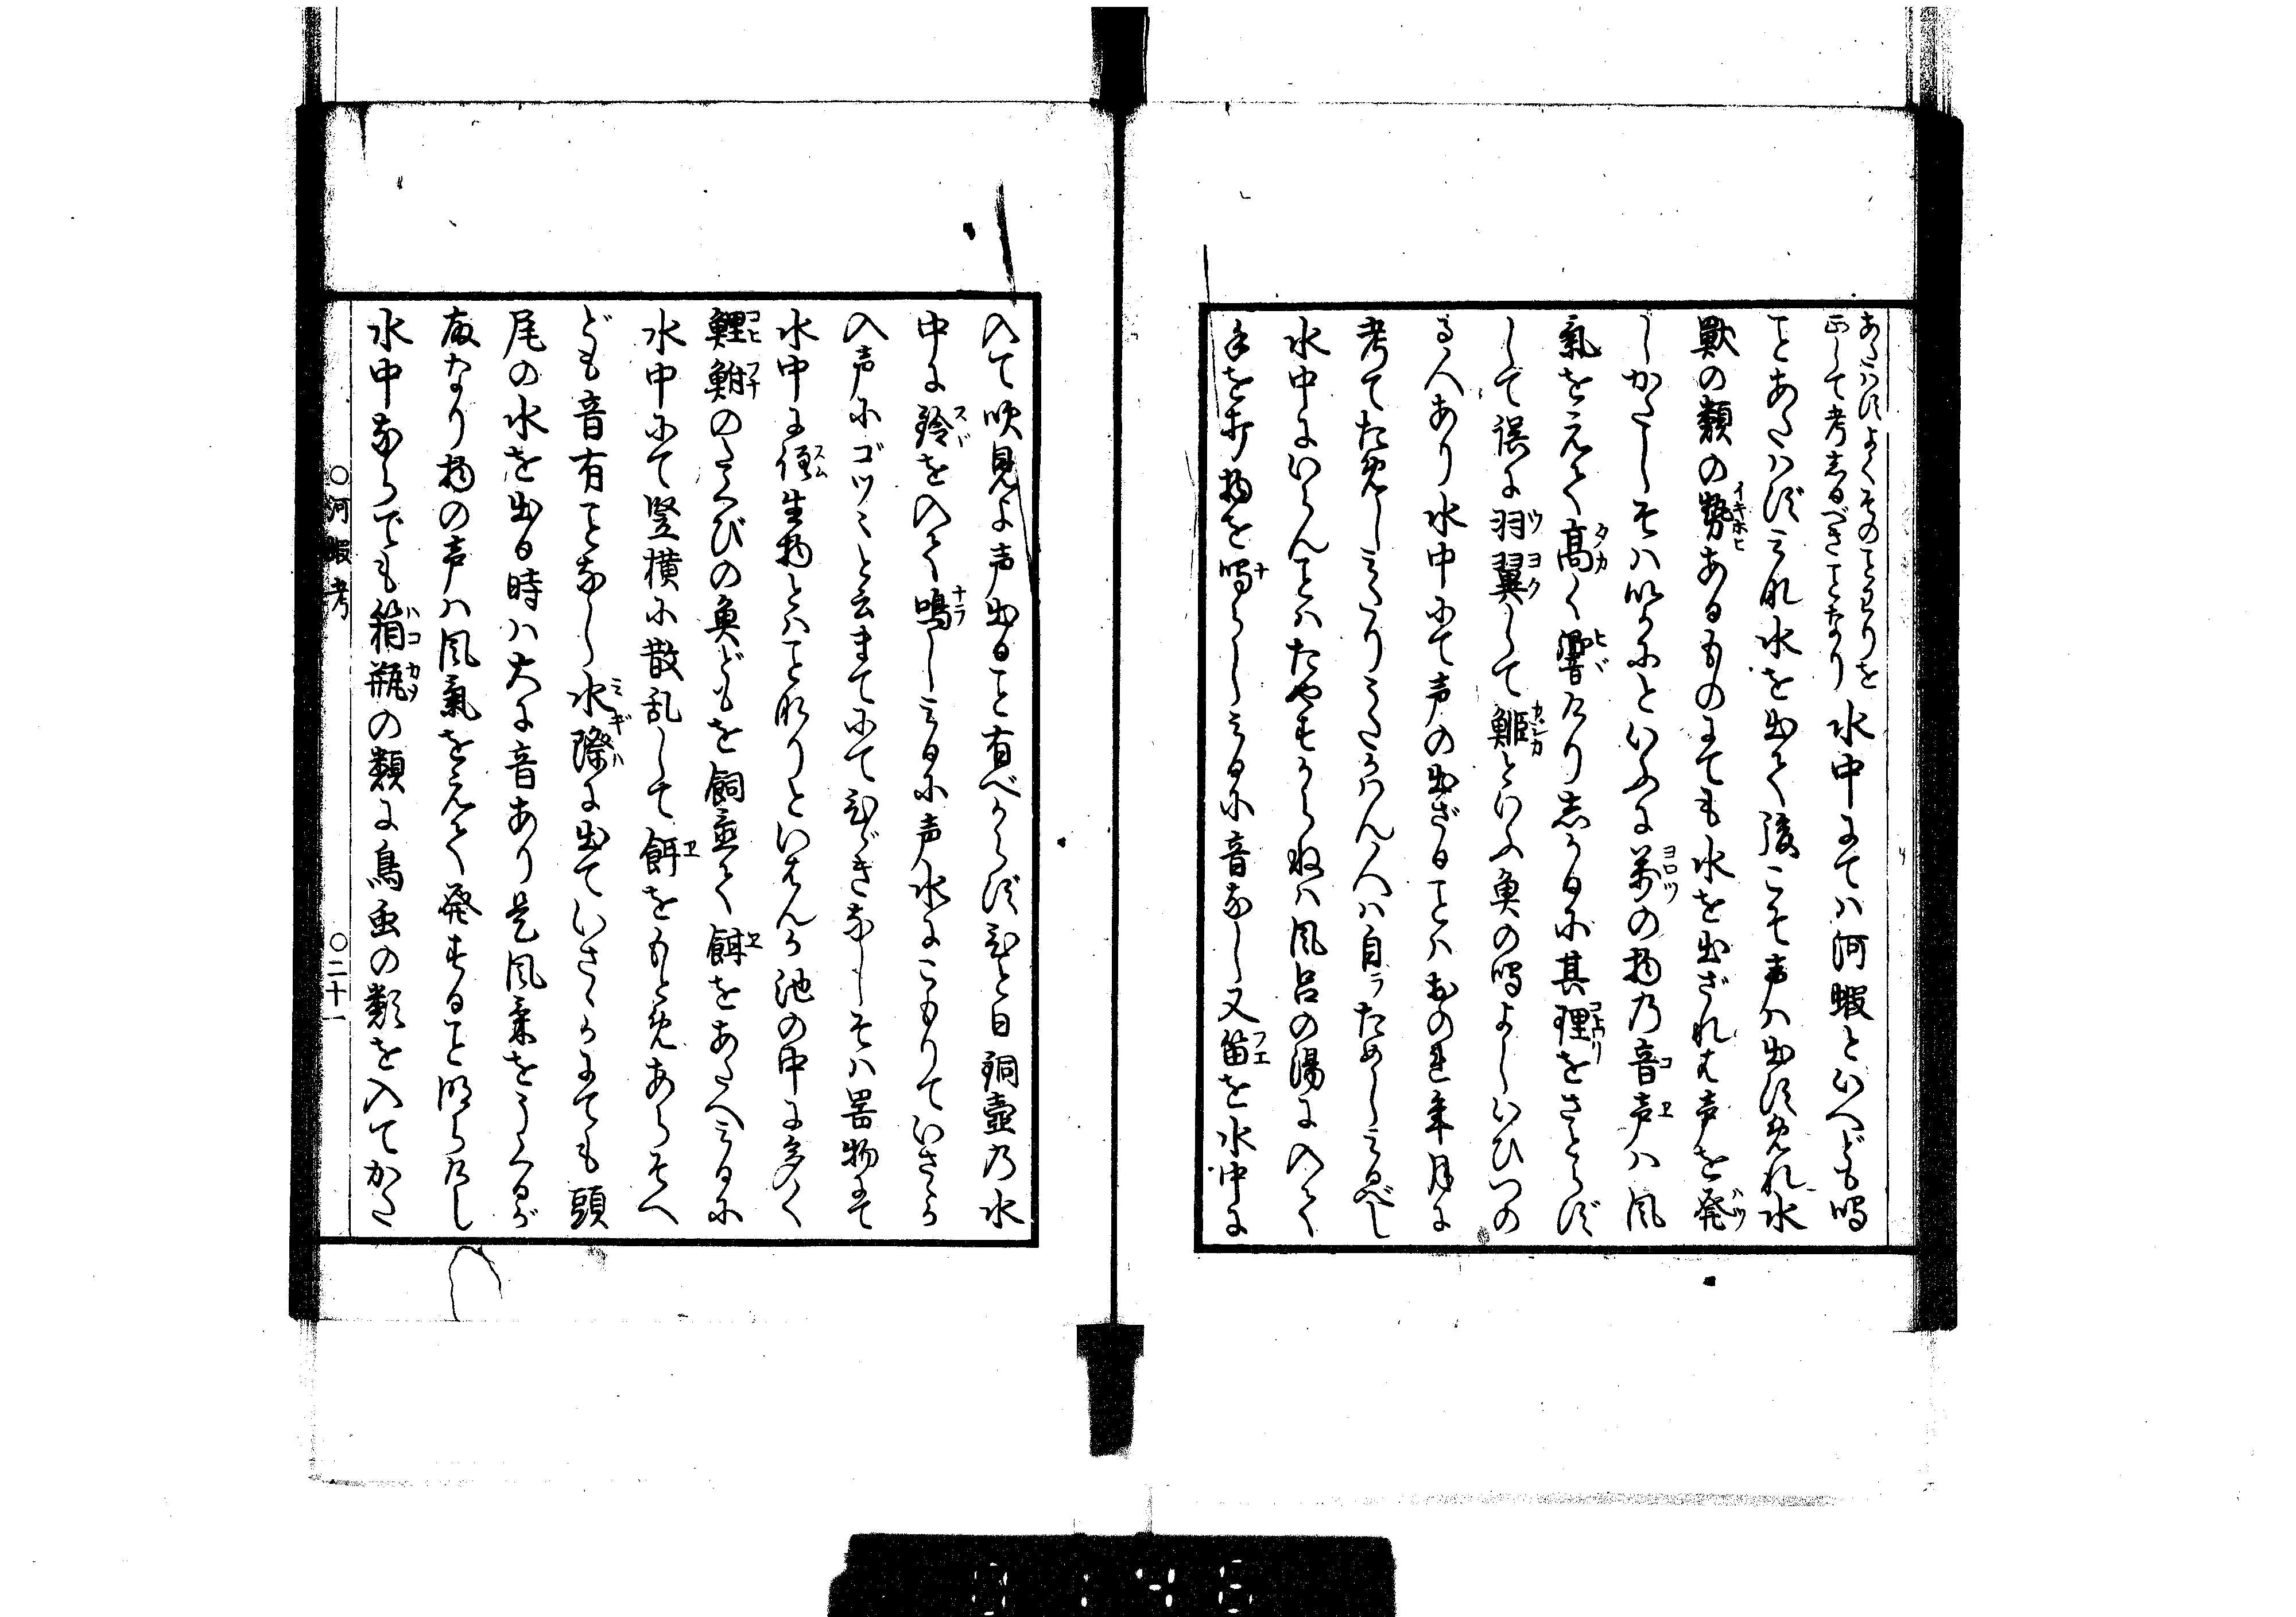 あたハずよくそのことわりを
正して考志るべきことなり
水中にてハ河蝦といへども鳴
ことあたハずされ水を出て後こそ声ハ出すめれ水
獣の類の勢あるものにても水を出ざれバ声を発
しかたしそハいかにといふに万の物乃音声ハ風
氣をえて高く響けり志かるに其理をさとらず
して誤に羽翼して鮔といふ魚の鳴よしいひつの
る人あり水中にて声の出ざることハおのれ年月に
考てためしミたりうたかハん人ハ自ラためしミるべし
水中にいらんことハたやすからねハ風呂の湯に入て
手を打物を鳴らしミるに音なし又笛を水中に
入て吹見よ声出ること有べからずひと日銅壺乃水
中に鈴を入て鳴しミるに声水にこもりていさゝか
入声にゴツ〻と云まてにてひゞきなしそハ器物にて
水中に住生物とハことなりといはんか池の中に多く
鯉鮒のたくひの魚どもを飼置て餌をあたへミるに
水中にて竪横に散乱して餌をもとめあらそへ
ども音有ことなし水際に出ていさゝかにても頭
尾の水を出る時ハ大に音あり是風氣をうくるが
故なり物の声ハ風氣をえて発すること明らけし
水中ならでも箱瓶の類に鳥虫の類を入てかた
○河蝦考
○二十一